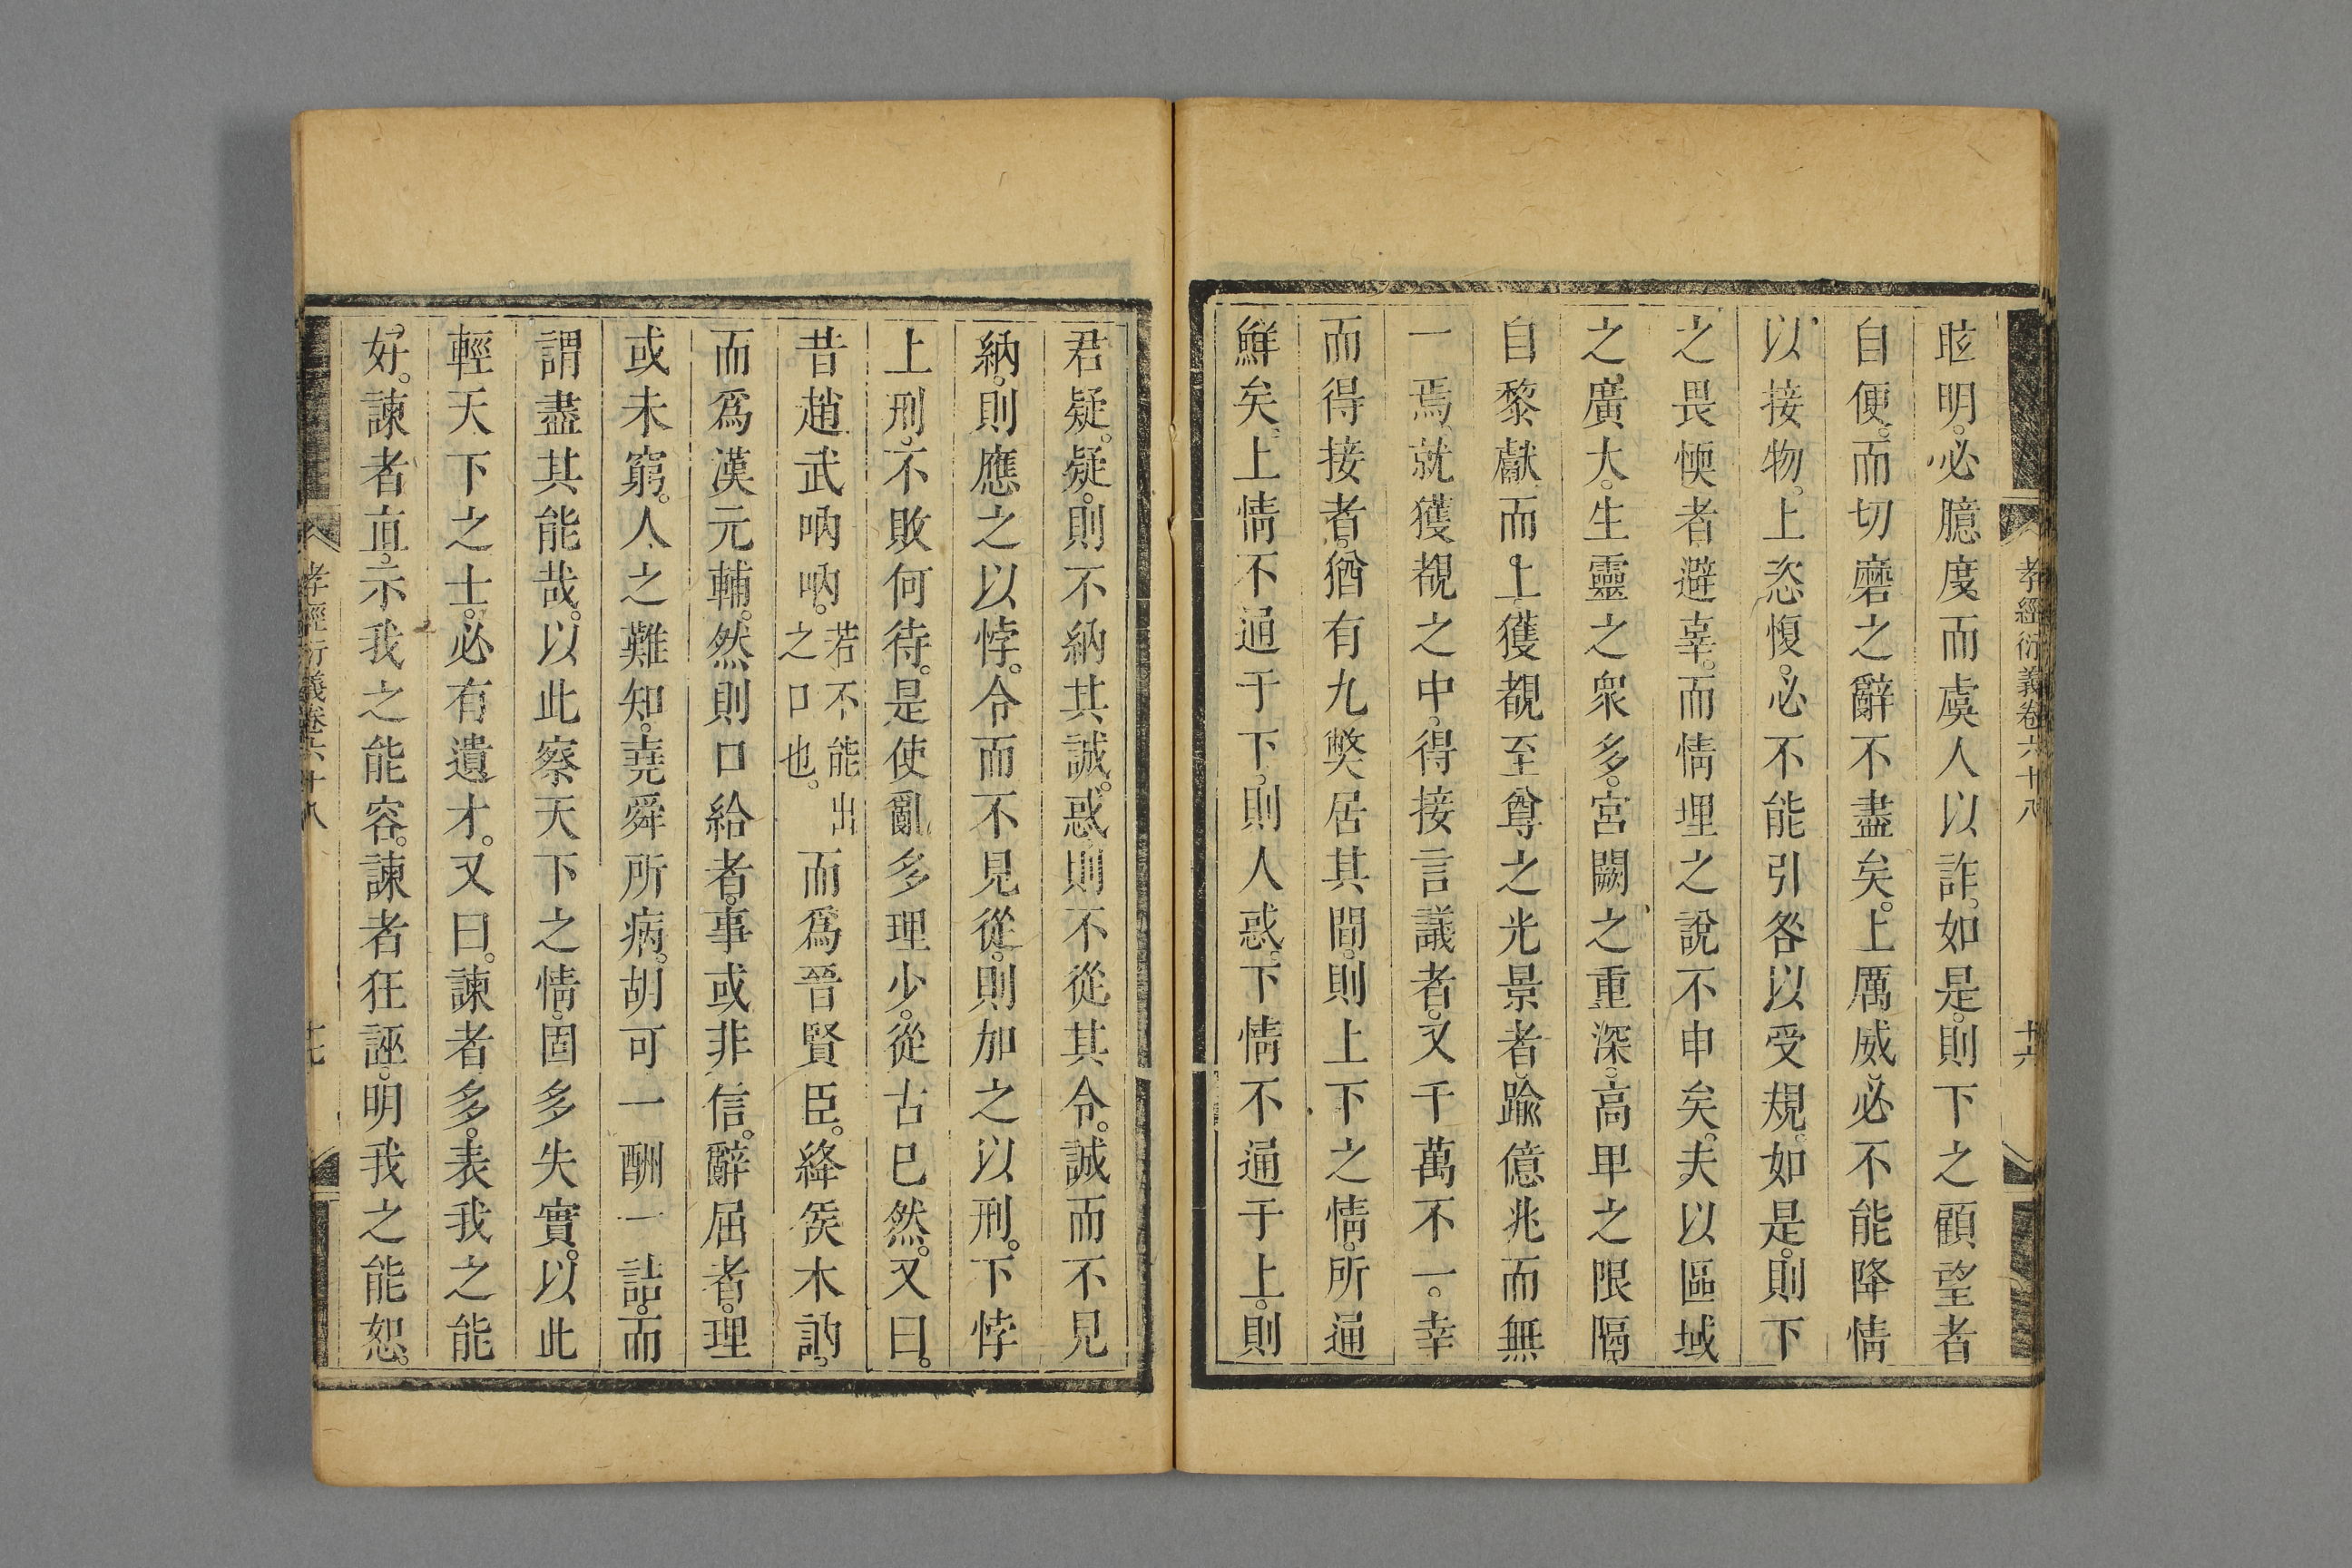 孝經衍義卷六十八 十六
眩明。必臆度而虞人以詐。如是。則下之顧望者
自便。而切磨之辭不盡矣。上厲威。必不能降情
以接物。上恣愎。必不能引咎以受規。如是。則下
之畏愞者避辜。而情理之說不申矣。夫以區域
之廣大。生靈之衆多。宮闕之重深。高卑之限隔。
自黎獻而上。獲覩至尊之光景者。踰億兆而無
一焉。就獲覩之中。得接言議者。又千萬不一。幸
而得接者。猶有九弊居其間。則上下之情。所通
鮮矣。上情不通于下。則人惑。下情不通于上。則
君疑。疑。則不納其誠。惑。則不從其令。誠而不見
納。則應之以悖。令而不見從。則加之以刑。下悖
上刑。不敗何待。是使亂多理少。從古已然。又曰。
昔趙武吶吶。若不能出之口也。而爲晉賢臣。絳矦木訥。
而爲漢元輔。然則口給者。事或非信。辭屈者。理
或未窮。人之難知。堯舜所病。胡可一酬一詰。而
謂盡其能哉。以此察天下之情。固多失實。以此
輕天下之士。必有遺才。又曰。諫者多。表我之能
好。諫者直。示我之能容。諫者狂誣。明我之能恕。
孝經衍義卷六十八 十七